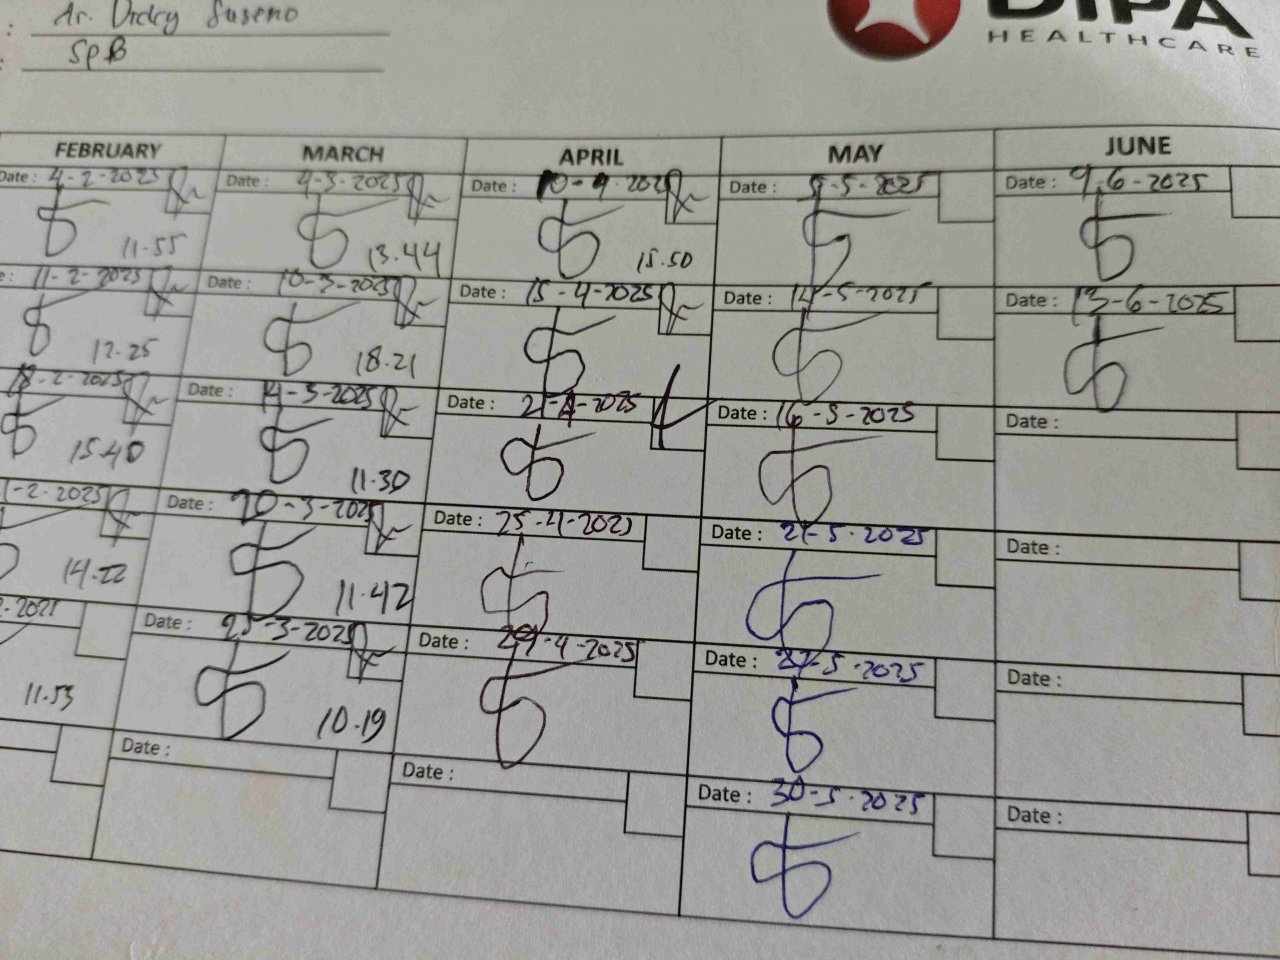 : dr. Dicky Suseno
: SpB
DIPA
HEALTHCARE
FEBRUARY MARCH APRIL MAY JUNE
Date : 4-2-2025 Date : 4-3-2025 Date : 10-4-2025 Date : 5-5-2025 Date : 9.6-2025
11.55 13.44 15.50
: 11-2-2025 Date : 10-3-2025 Date : 15-4-2025 Date : 14-5-2025 Date : 13-6-2025
12.25 18.21
18-2-2025 Date : 14-3-2025 Date : 21-4-2025 Date : 16-5-2025 Date :
15.40 11.30
-2-2025 Date : 20-3-2025 Date : 25-4-2025 Date : 21-5-2025 Date :
14.22 11.42
-2025 Date : 25-3-2025 Date : 29-4-2025 Date : 27-5-2025 Date :
11.53 10.19
Date : Date : Date : 30-5-2025 Date :